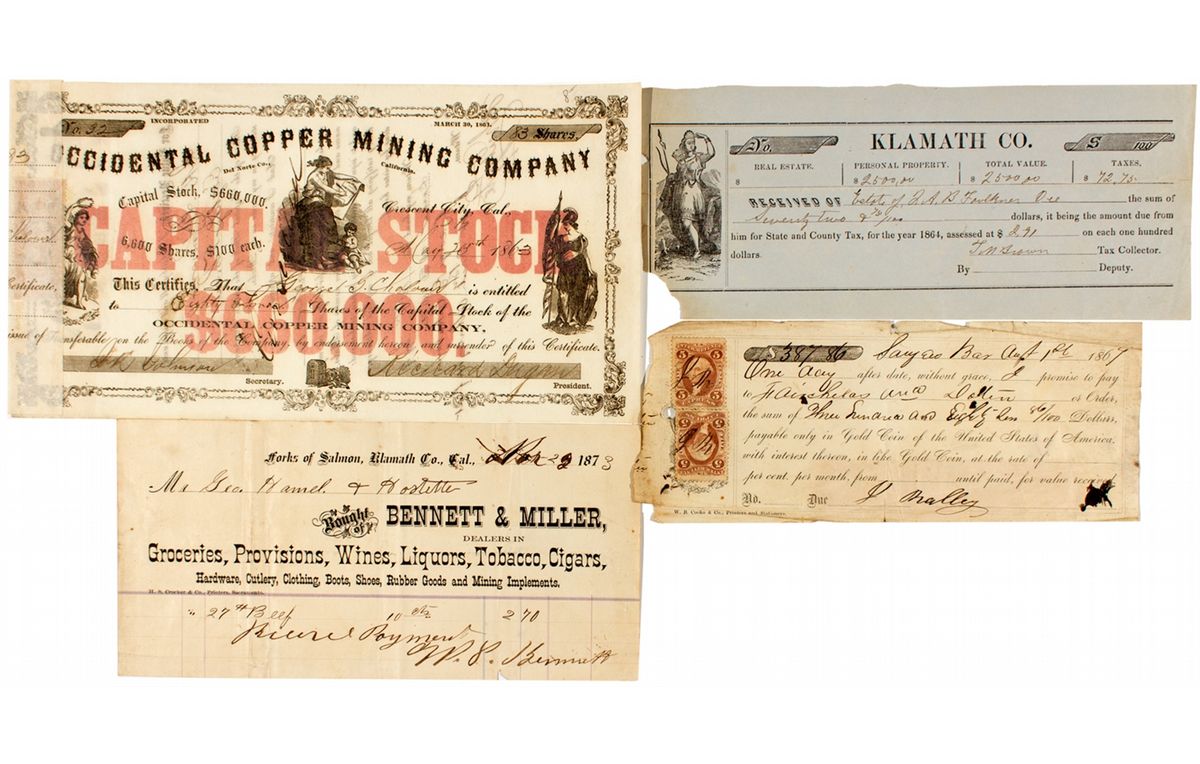 No. 32
INCORPORATED
MARCH 30, 1863.
83 Shares.
OCCIDENTAL COPPER MINING COMPANY
Del Norte Co.,
California.
Capital Stock, $660,000.
6,600 Shares, $100 each.
CAPITAL STOCK
$660,000.
Crescent City, Cal.,
May 25th 1863
This Certifies, That
is entitled
to Eighty three Shares of the Capital Stock of the
OCCIDENTAL COPPER MINING COMPANY,
Transferable on the Books of the Company, by endorsement hereon and surrender of this Certificate.
Secretary.
President.
ertificate,
issue of
KLAMATH CO.
No.
$ 100
REAL ESTATE. PERSONAL PROPERTY. TOTAL VALUE. TAXES.
$ $2500,00 $2500,00 $72,75
RECEIVED OF Estate of the sum of
Seventy two & 75/100 dollars, it being the amount due from
him for State and County Tax, for the year 1864, assessed at $2.91 on each one hundred
dollars. Brown Tax Collector.
By Deputy.
$387 86 Sawyers Bar Augt 1st 1867
One day after date, without grace, I promise to pay
to and or Order,
the sum of Three hundred and Eighty Sev 86/100 Dollars,
payable only in Gold Coin of the United States of America.
with interest thereon, in like Gold Coin, at the rate of
per cent. per month, from until paid, for value received
No. Due
W. B. Cooke & Co., Printers and Stationers.
5 5
5 5
Forks of Salmon, Klamath Co., Cal., Nov 29 1873
Mr Geo Hamel & Hostetter
Bought of BENNETT & MILLER,
DEALERS IN
Groceries, Provisions, Wines, Liquors, Tobacco, Cigars,
Hardware, Cutlery, Clothing, Boots, Shoes, Rubber Goods and Mining Implements.
H. S. Crocker & Co., Printers, Sacramento.
" 27 # Beef 10 cts 2 70
Payment
Bennett